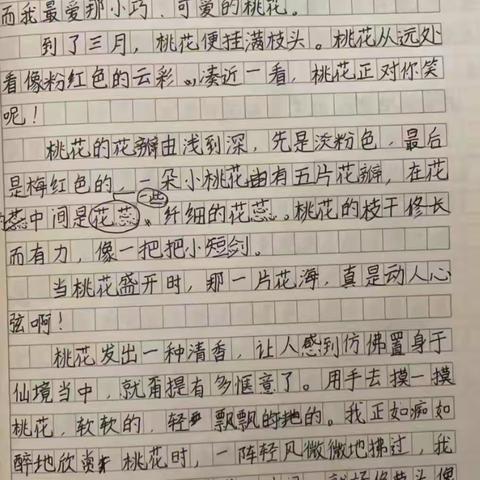 而我最爱那小巧、可爱的桃花。
到了三月，桃花便挂满枝头。桃花从远处
看像粉红色的云彩，凑近一看，桃花正对你笑
呢！
桃花的花瓣由浅到深，先是淡粉色，最后
是梅红色的，一朵小桃花由有五片花瓣，在花
一些
蕊中间是花蕊。纤细的花蕊。桃花的枝干修长
而有力，像一把把小短剑。
当桃花盛开时，那一片花海，真是动人心
弦啊！
桃花发出一种清香，让人感到仿佛置身于
仙境当中，就甭提有多惬意了。用手去摸一摸
桃花，软软的，轻飘飘的地的。我正如痴如
醉地欣赏桃花时，一阵轻风微微地拂过，我